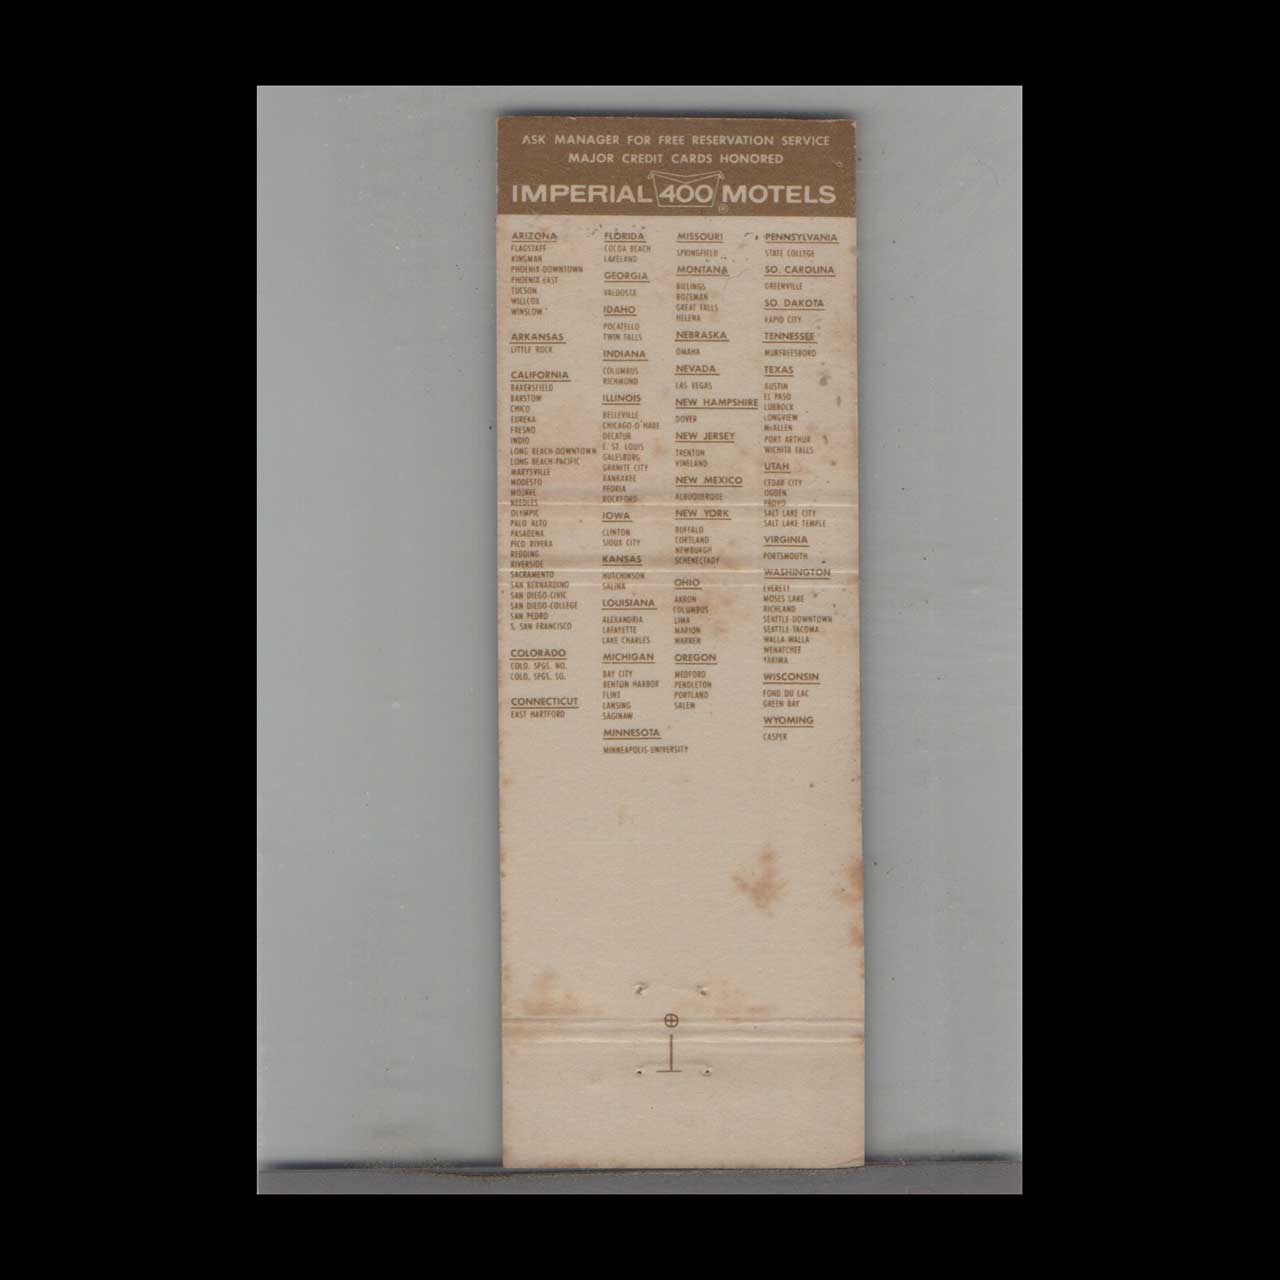 ASK MANAGER FOR FREE RESERVATION SERVICE
MAJOR CREDIT CARDS HONORED
IMPERIAL 400 MOTELS
ARIZONA
FLAGSTAFF
KINGMAN
PHOENIX-DOWNTOWN
PHOENIX EAST
TUCSON
WILLCOX
WINSLOW
ARKANSAS
LITTLE ROCK
CALIFORNIA
BAKERSFIELD
BARSTOW
CHICO
EUREKA
FRESNO
INDIO
LONG BEACH-DOWNTOWN
LONG BEACH-PACIFIC
MARYSVILLE
MODESTO
MOJAVE
NEEDLES
OLYMPIC
PALO ALTO
PASADENA
PICO RIVERA
REDDING
RIVERSIDE
SACRAMENTO
SAN BERNARDINO
SAN DIEGO-CIVIC
SAN DIEGO-COLLEGE
SAN PEDRO
S. SAN FRANCISCO
COLORADO
COLO. SPGS. NO.
COLO. SPGS. SO.
CONNECTICUT
EAST HARTFORD
FLORIDA
COCOA BEACH
LAKELAND
GEORGIA
VALDOSTA
IDAHO
POCATELLO
TWIN FALLS
INDIANA
COLUMBUS
RICHMOND
ILLINOIS
BELLEVILLE
CHICAGO-O'HARE
DECATUR
E. ST. LOUIS
GALESBURG
GRANITE CITY
KANKAKEE
PEORIA
ROCKFORD
IOWA
CLINTON
SIOUX CITY
KANSAS
HUTCHINSON
SALINA
LOUISIANA
ALEXANDRIA
LAFAYETTE
LAKE CHARLES
MICHIGAN
BAY CITY
BENTON HARBOR
FLINT
LANSING
SAGINAW
MINNESOTA
MINNEAPOLIS UNIVERSITY
MISSOURI
SPRINGFIELD
MONTANA
BILLINGS
BOZEMAN
GREAT FALLS
HELENA
NEBRASKA
OMAHA
NEVADA
LAS VEGAS
NEW HAMPSHIRE
DOVER
NEW JERSEY
TRENTON
VINELAND
NEW MEXICO
ALBUQUERQUE
NEW YORK
BUFFALO
CORTLAND
NEWBURGH
SCHENECTADY
OHIO
AKRON
COLUMBUS
LIMA
MARION
WARREN
OREGON
MEDFORD
PENDLETON
PORTLAND
SALEM
PENNSYLVANIA
STATE COLLEGE
SO. CAROLINA
GREENVILLE
SO. DAKOTA
RAPID CITY
TENNESSEE
MURFREESBORO
TEXAS
AUSTIN
EL PASO
LUBBOCK
LONGVIEW
McALLEN
PORT ARTHUR
WICHITA FALLS
UTAH
CEDAR CITY
OGDEN
PROVO
SALT LAKE CITY
SALT LAKE TEMPLE
VIRGINIA
PORTSMOUTH
WASHINGTON
EVERETT
MOSES LAKE
RICHLAND
SEATTLE-DOWNTOWN
SEATTLE-TACOMA
WALLA-WALLA
WENATCHEE
YAKIMA
WISCONSIN
FOND DU LAC
GREEN BAY
WYOMING
CASPER